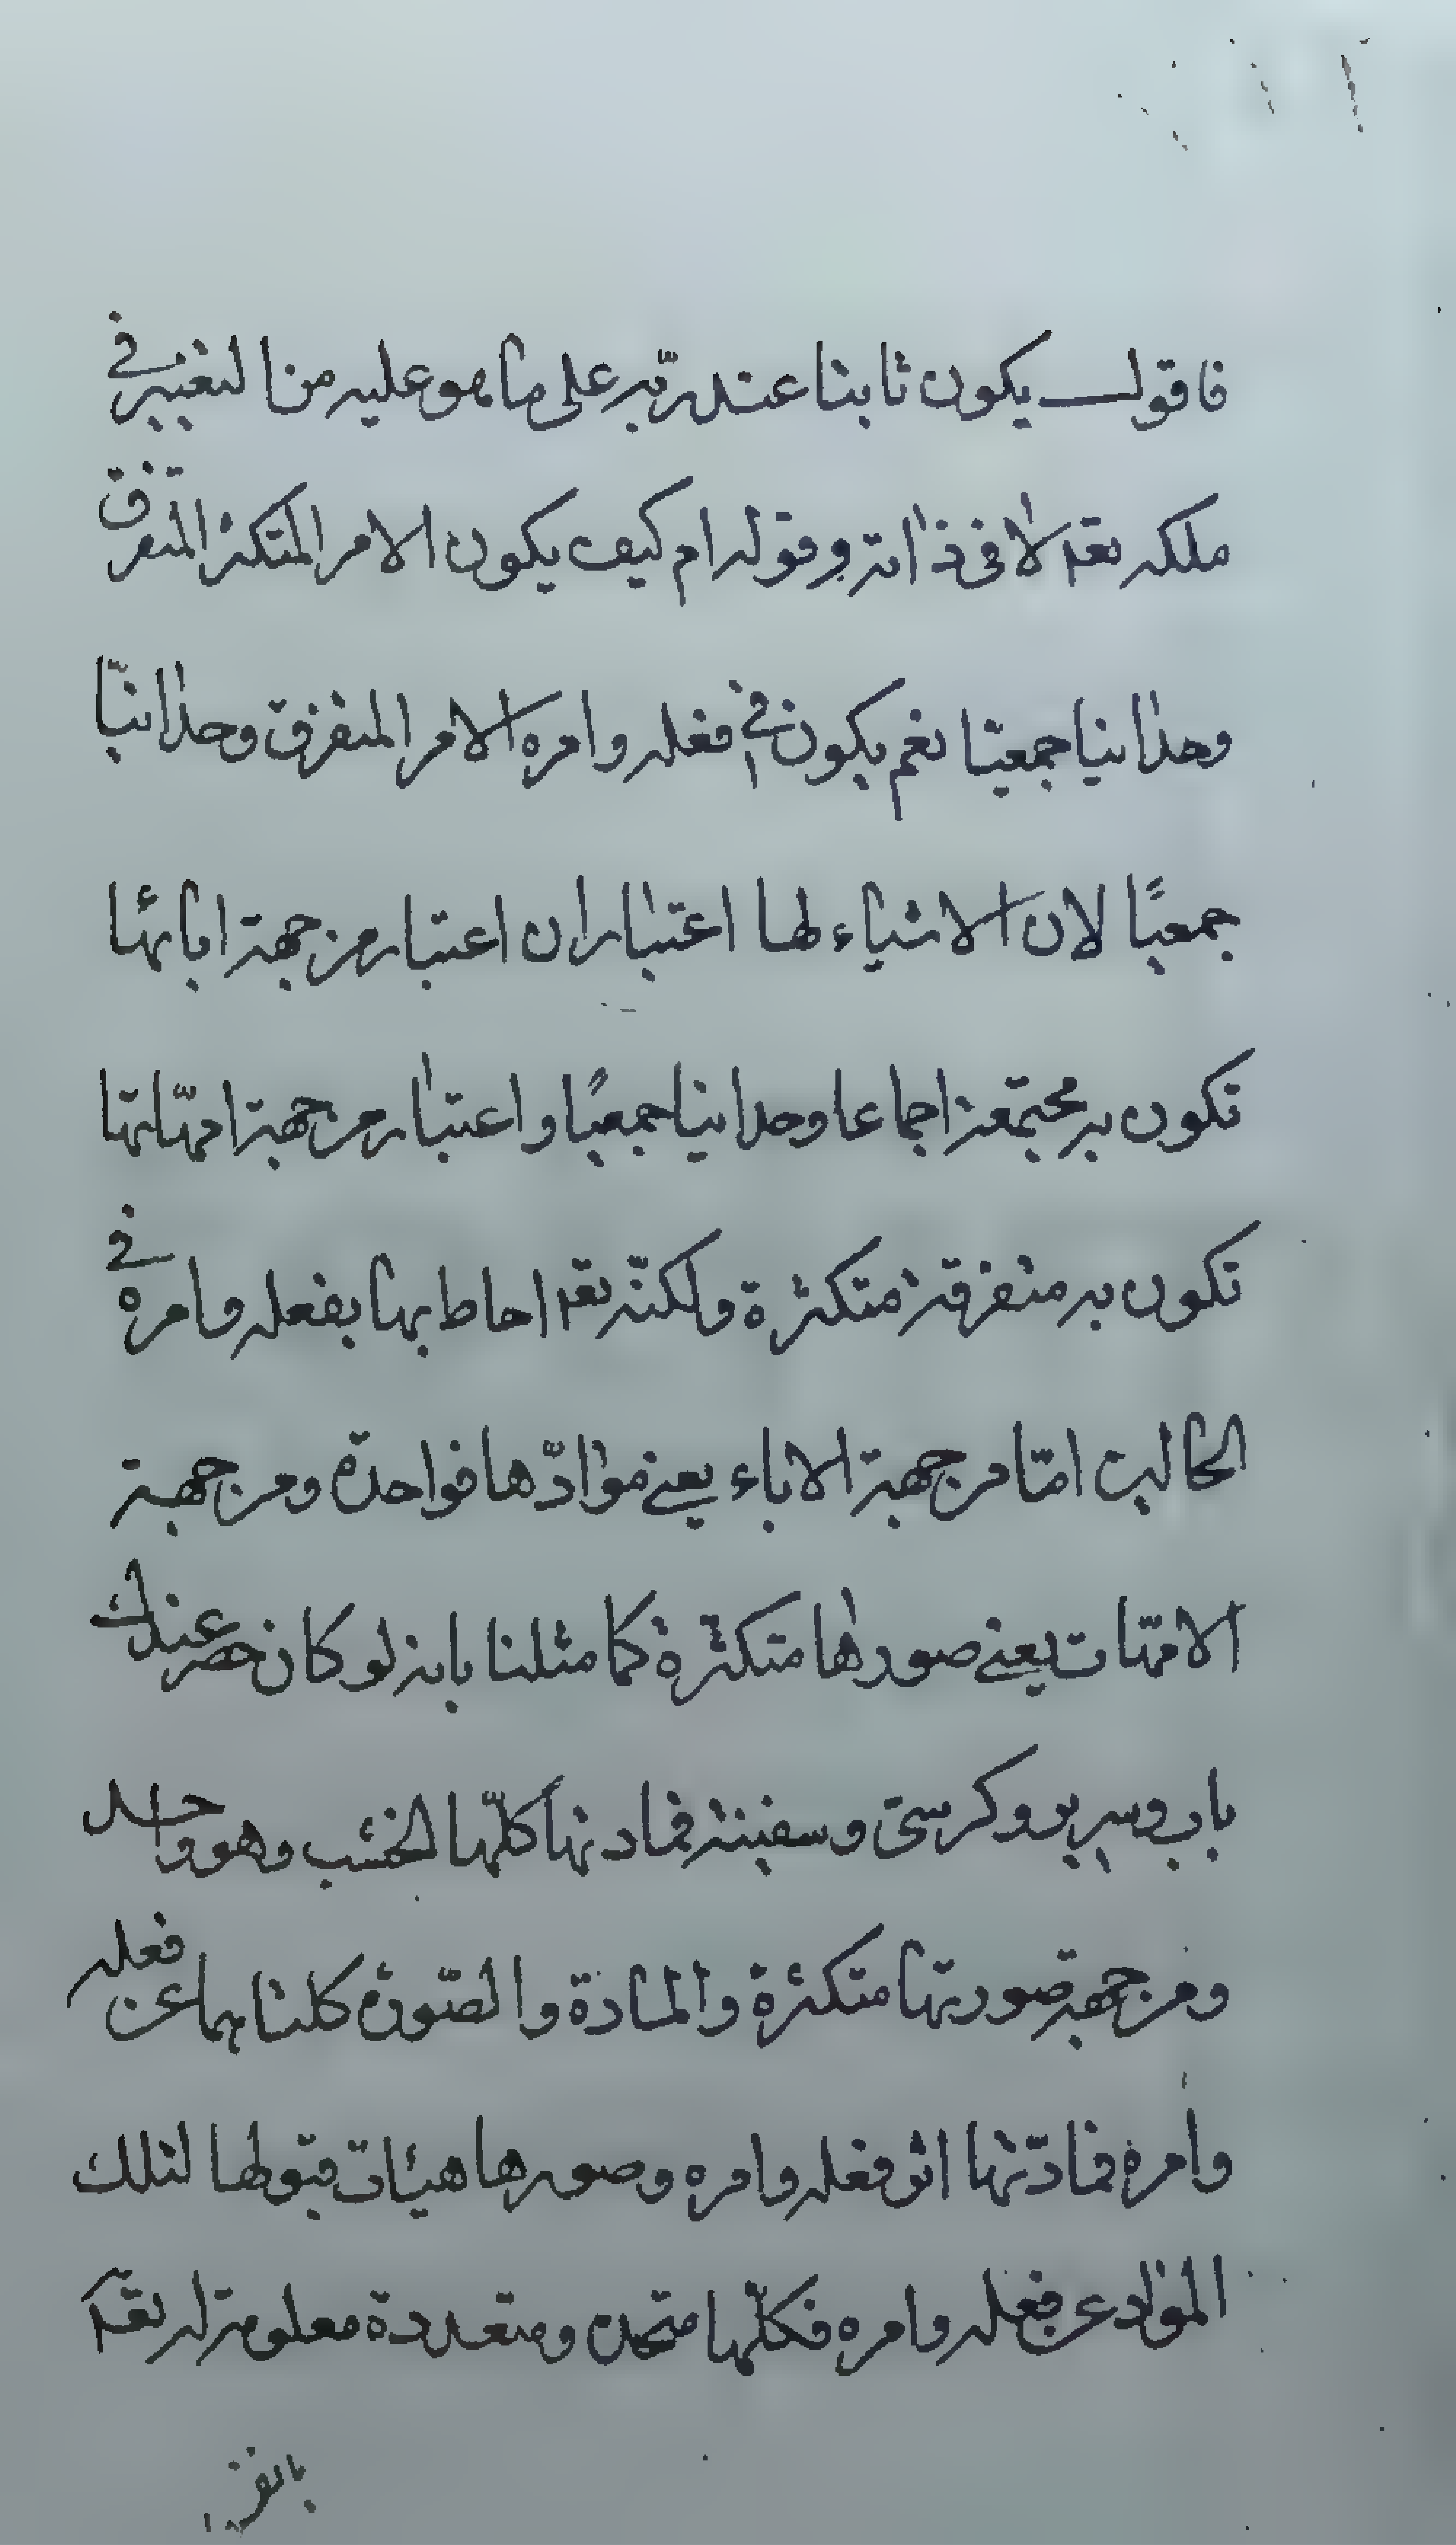 فاقول يكون ثابتا عند ربّه على ما هو عليه من التغيير في
ملكه تعه لا في ذاته وقوله ام كيف يكون الامر المتكثر المتفرق
وحدانيا جمعيّا نعم يكون في فعله وامره الامر المتفرق وحدانيّا
جمعيًا لان الاشياء لها اعتباران اعتبار من جهة ابائها
تكون به مجتمعة اجماعا وحدانيا جمعيًا واعتبار من جهة امّهاتها
تكون به متفرقة متكثرة ولكنّه تعه احاط بها بفعله وامره في
الحالين امّا من جهة الاباء يعني موادّها فواحدة ومن جهة
الامّهات يعني صورها متكثرة كما مثلنا بانه لو كان حضر عندك
باب وسرير وكرسي وسفينة فمادتها كلّها الخشب وهو واحد
ومن جهة صورتها متكثرة والمادة والصّورة كلتاهما عن فعله
وامره فمادّتها اثر فعله وامره وصورها هيئات قبولها لتلك
المواد عن فعله وامره فكلّها متحدة ومتعددة معلومة له تعه